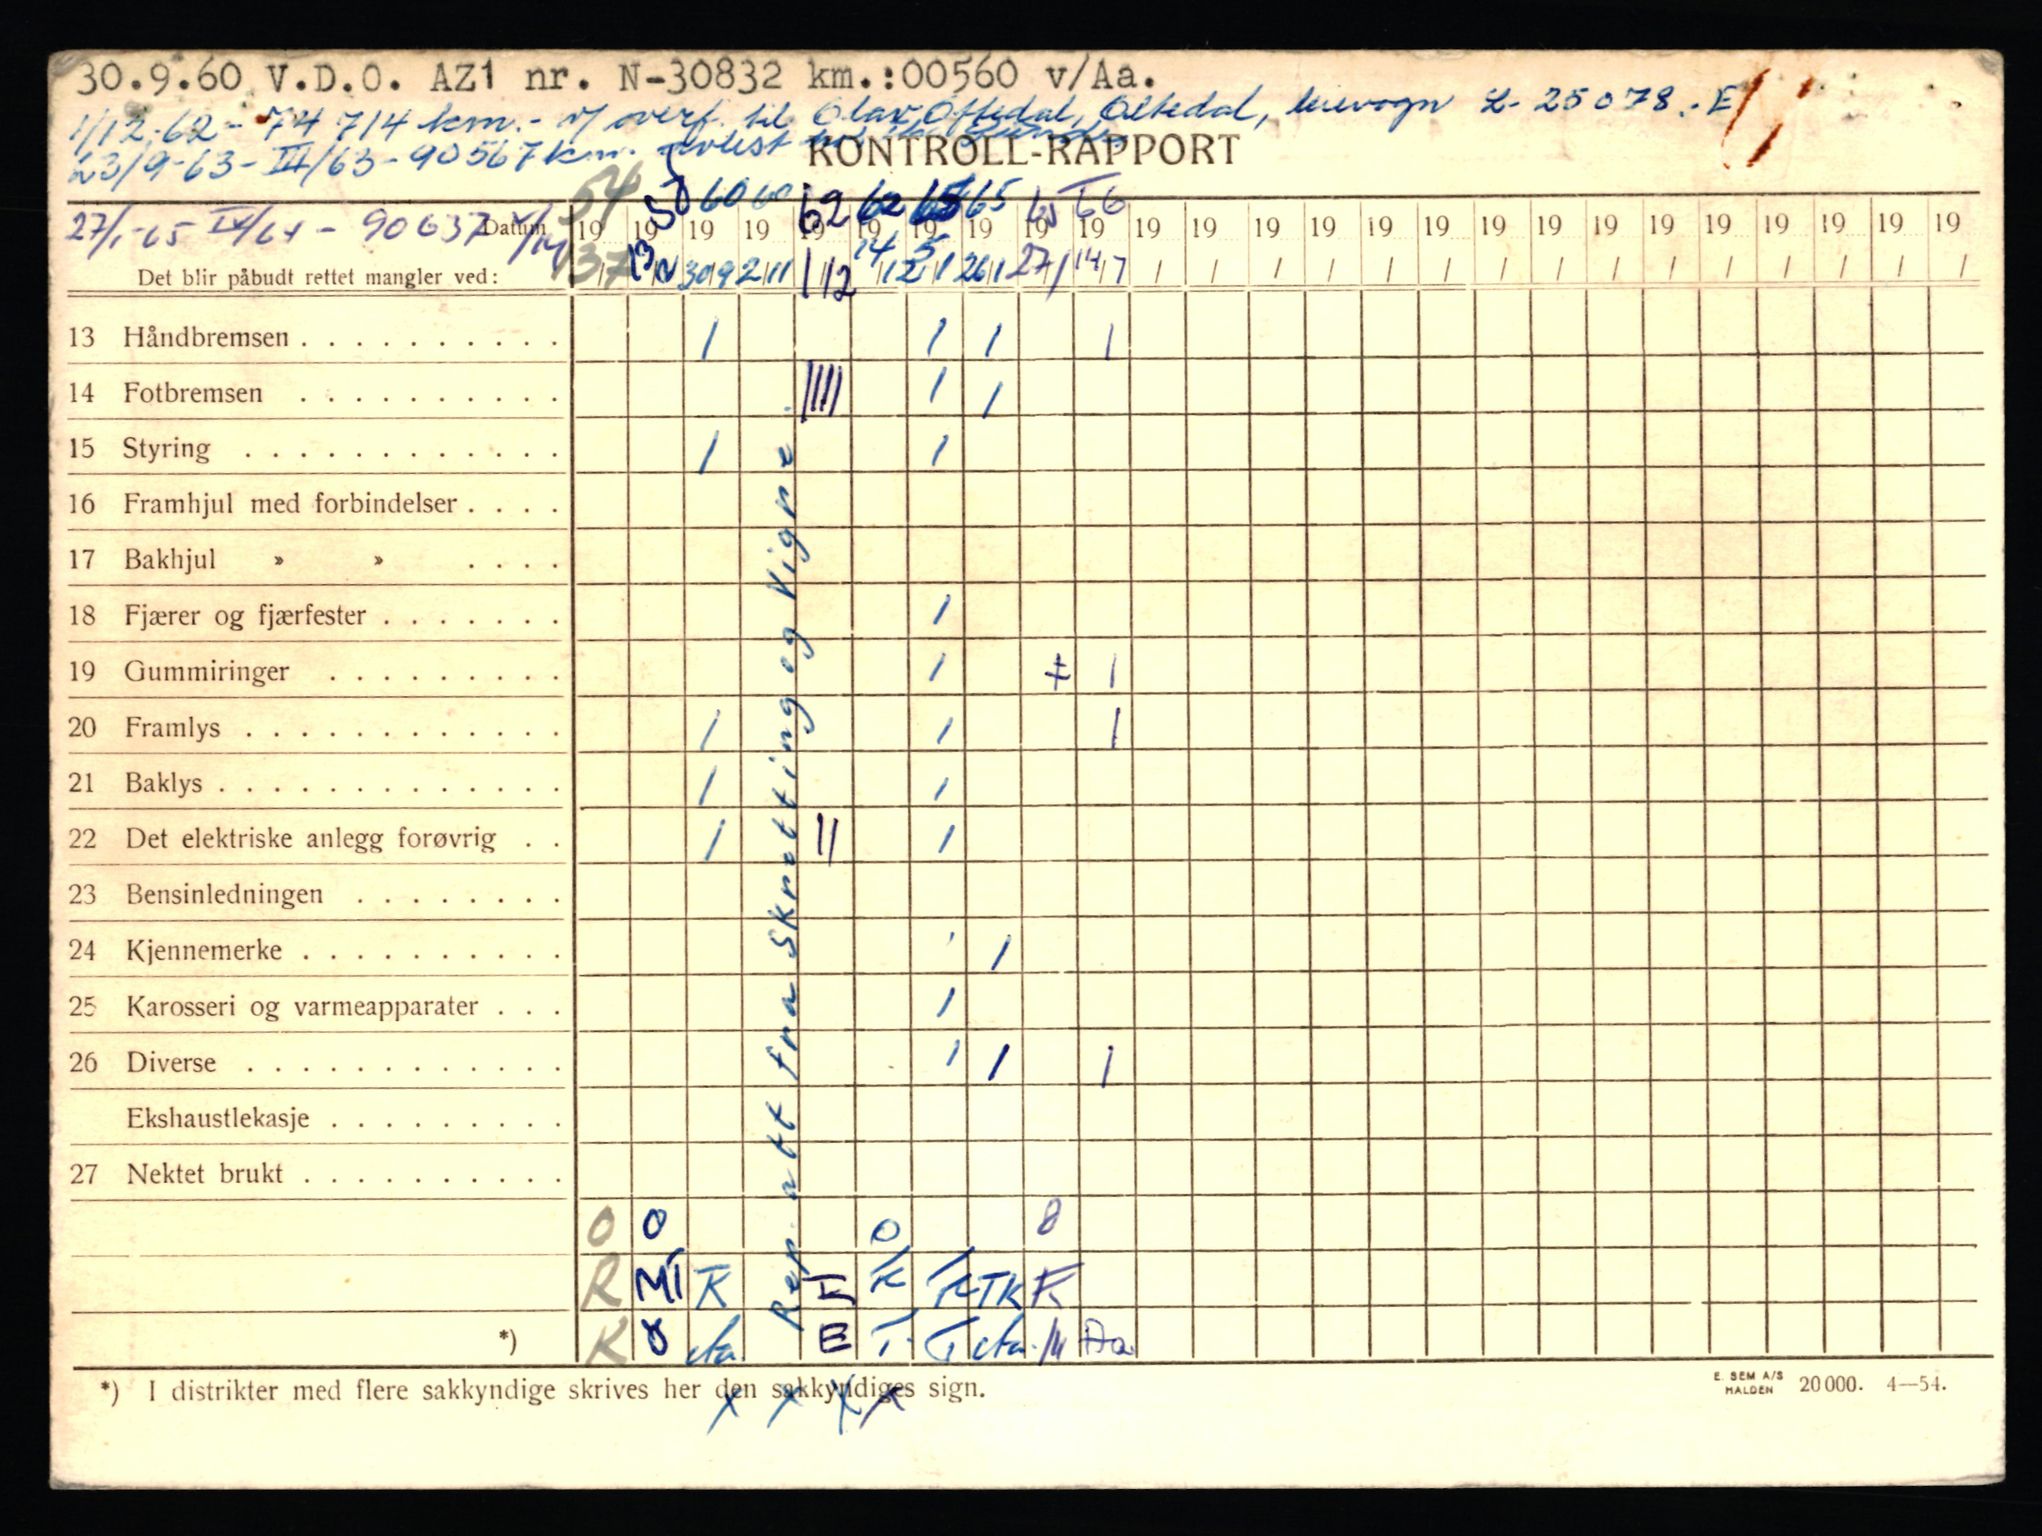 30.9.60 V.D.O. AZ1 nr. N-30832 km.:00560 v/Aa.
1/12.62 - 74 714 km. - v/ overf. til Olav Oftedal, Oltedal, leievogn L-25078. E
23/9-63 - III/63 - 90567 km. avlest
KONTROLL-RAPPORT
27/1-65 IV/64 - 90637
54 60 60 62 62 65 65 65 66
Datum 19 19 19 19 19 19 19 19 19 19 19 19 19 19 19 19 19 19 19 19 19 19 19 19 19
Det blir påbudt rettet mangler ved: 30/9 2/11 1/12 14/12 5/1 26/1 27/1 14/7 / / / / / / / / / / / / / / /
13 Håndbremsen . . . . . . . . . . 1 1 1 1
14 Fotbremsen . . . . . . . . . . 1111 1 1
15 Styring . . . . . . . . . . . . 1 1
16 Framhjul med forbindelser . . . .
17 Bakhjul » » . . . .
18 Fjærer og fjærfester . . . . . . . 1
19 Gummiringer . . . . . . . . . 1 1
20 Framlys . . . . . . . . . . . . 1 1 1
21 Baklys . . . . . . . . . . . . . 1 1
22 Det elektriske anlegg forøvrig . . 1 11 1
23 Bensinledningen . . . . . . . .
24 Kjennemerke . . . . . . . . . . 1 1
25 Karosseri og varmeapparater . . . 1
26 Diverse . . . . . . . . . . . . 1 1 1
Ekshaustlekasje . . . . . . . . .
27 Nektet brukt . . . . . . . . . .
Rep. att fra Skretting og Vigre.
O O O 8
R MT K K TK TK
*) K Aa E T. T Aa. Aa.
*) I distrikter med flere sakkyndige skrives her den sakkyndiges sign.
x x x x
E. SEM A/S HALDEN 20 000. 4—54.